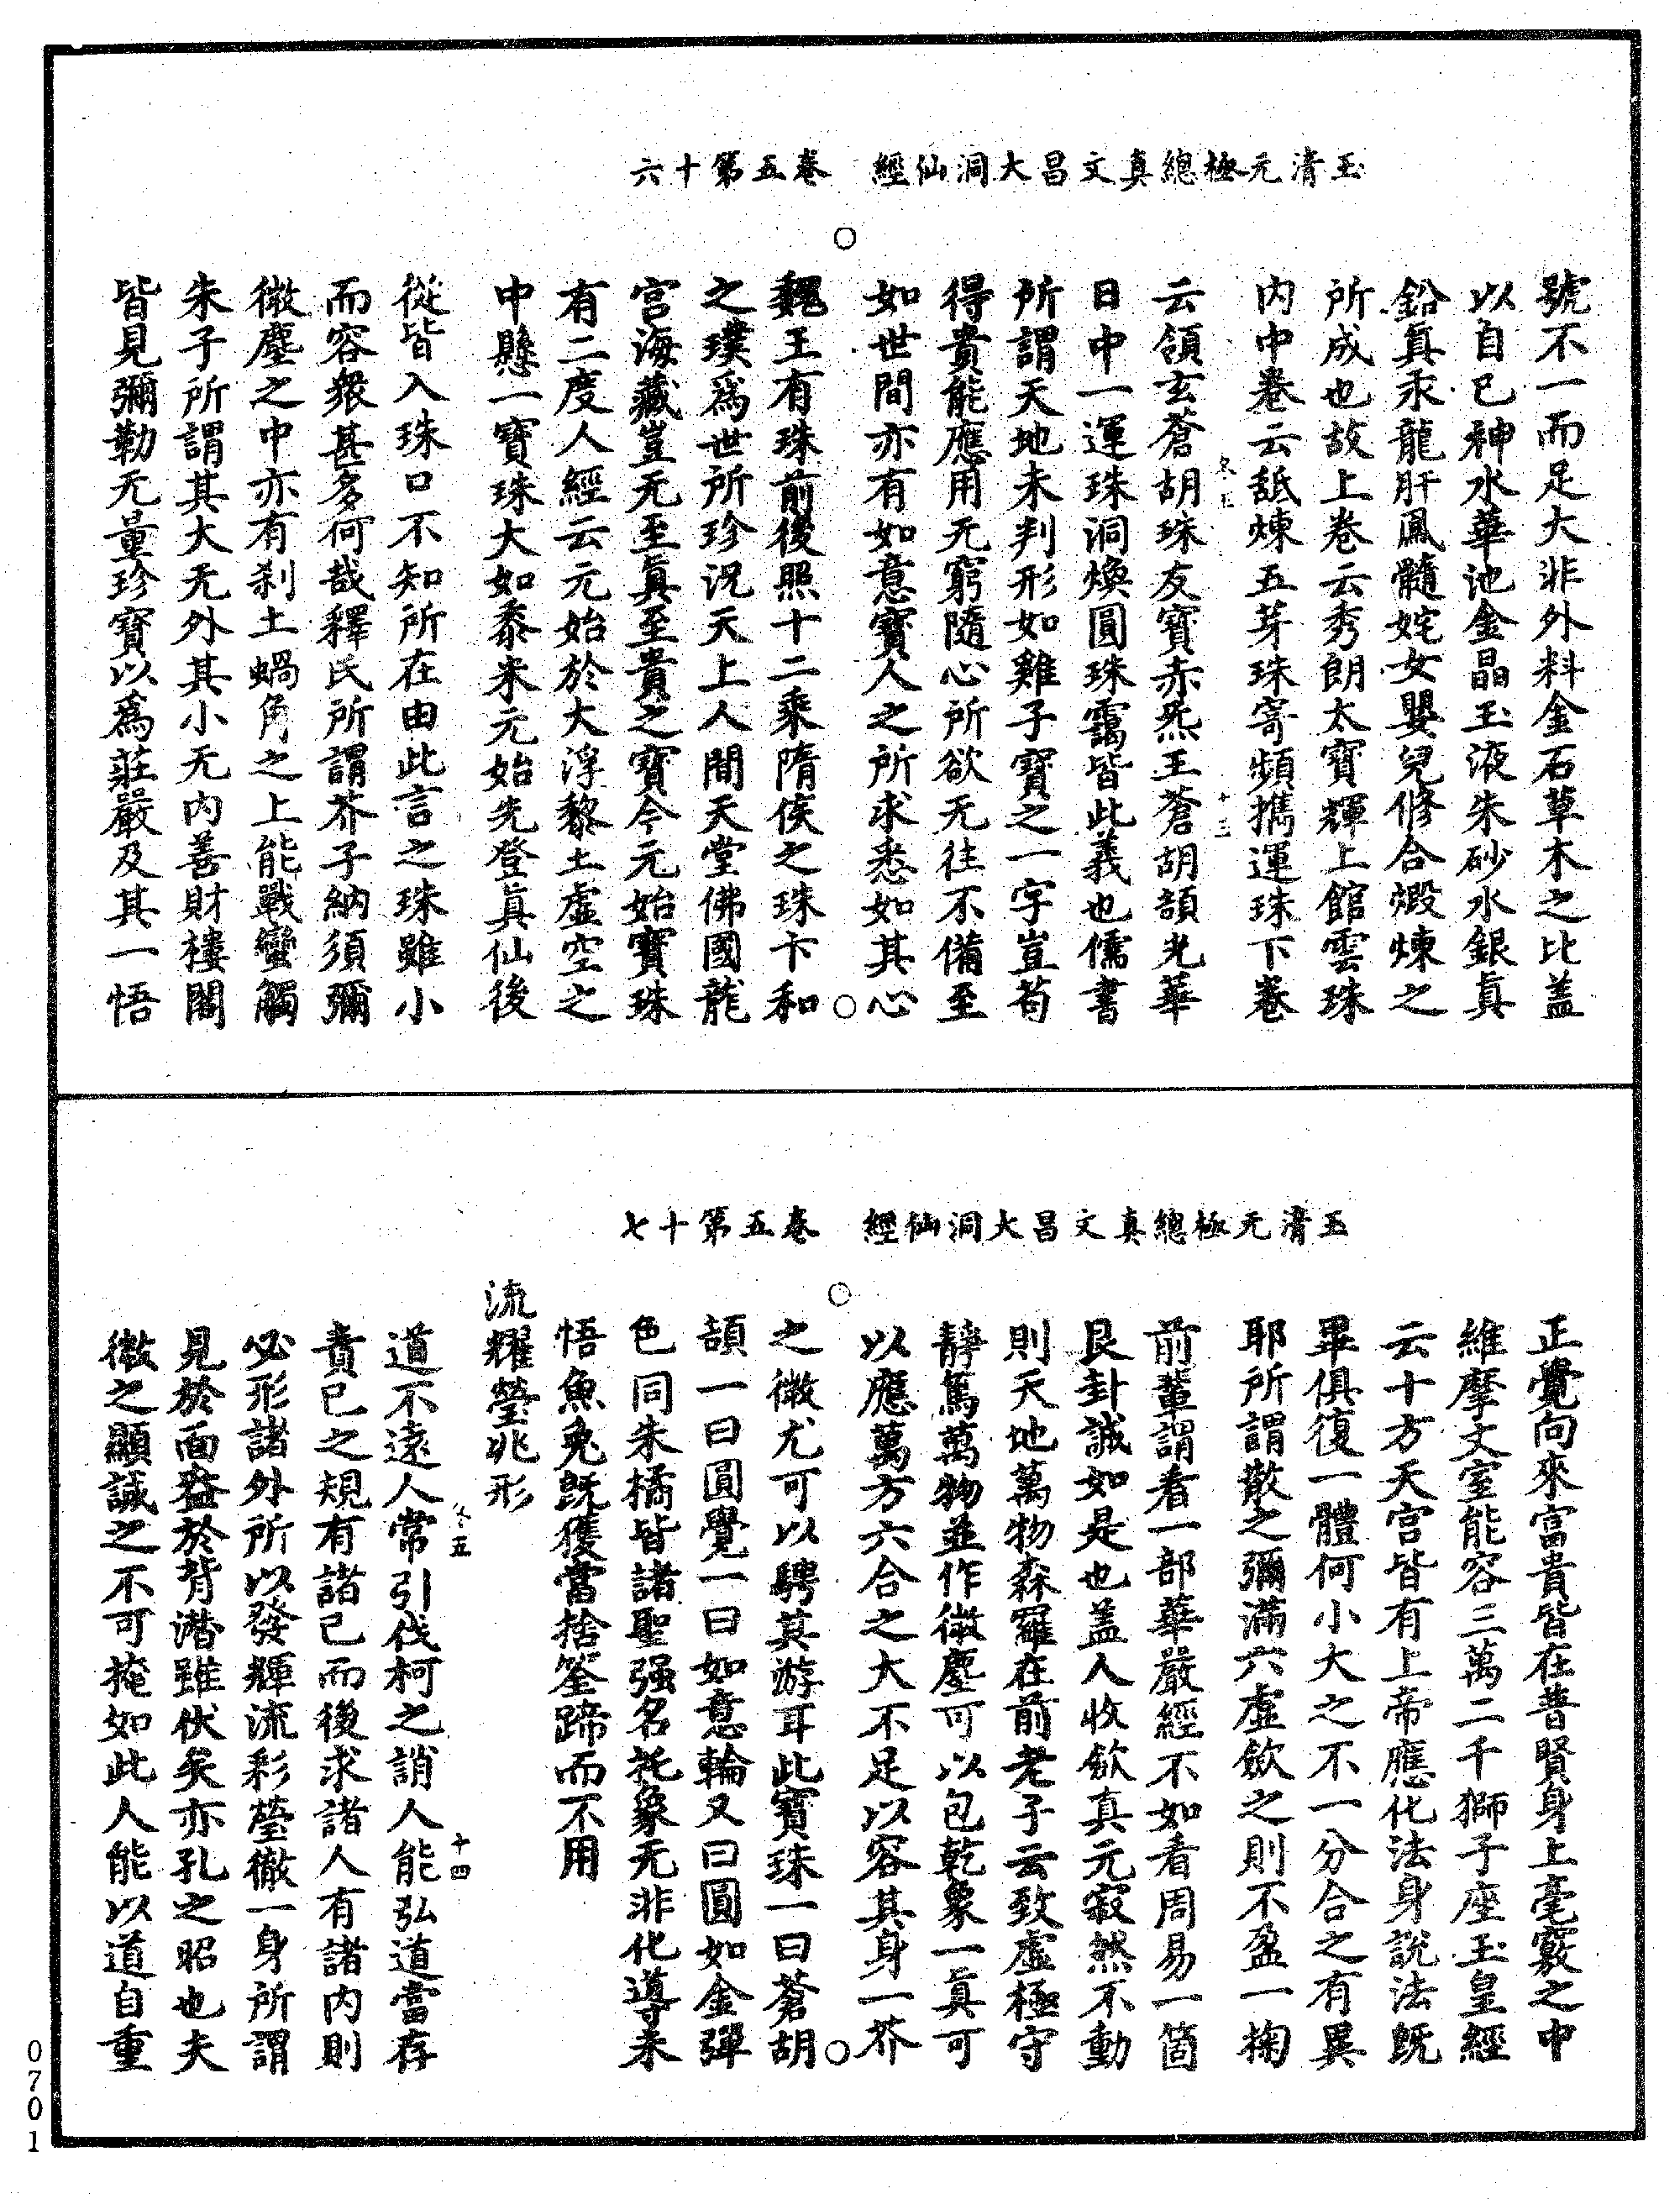 玉清元極總真文昌大洞仙經　卷五第十六
號不一而足大非外料金石草木之比盖
以自己神水華池金晶玉液朱砂水銀真
鉛真汞龍肝鳳髓姹女嬰兒修合煅煉之
所成也故上卷云秀朗太寶輝上館雲珠
内中卷云䑛煉五芽珠寄頻擕運珠下卷
冬五　十三
云頷玄蒼胡珠友寶赤炁王蒼胡頡光華
日中一運珠洞煥圓珠靄皆此義也儒書
所謂天地未判形如雞子寶之一字豈苟
得貴能應用无窮隨心所欲无往不備至
如世間亦有如意寶人之所求悉如其心
魏王有珠前後照十二乘隋侯之珠卞和
之璞爲世所珍況天上人間天堂佛國龍
宫海藏豈无至真至貴之寶今元始寶珠
有二度人經云元始於大浮黎土虛空之
中懸一寶珠大如黍米元始先登真仙後
從皆入珠口不知所在由此言之珠雖小
而容衆甚多何哉釋氏所謂芥子納須彌
微塵之中亦有刹土蝸角之上能戰蠻觸
朱子所謂其大无外其小无内善財樓閣
皆見彌勒无量珍寶以爲莊嚴及其一悟
玉清元極總真文昌大洞仙經　卷五第十七
正覺向來富貴皆在普賢身上毫竅之中
維摩丈室能容三萬二千獅子座玉皇經
云十方天宫皆有上帝應化法身說法既
畢俱復一體何小大之不一分合之有異
耶所謂散之彌滿六虛歛之則不盈一掬
前輩謂看一部華嚴經不如看周易一箇
艮卦誠如是也盖人收歛真元寂然不動
則天地萬物森羅在前老子云致虛極守
靜篤萬物並作微塵可以包乾象一真可
以應萬方六合之大不足以容其身一芥
之微尤可以騁其游耳此寶珠一曰蒼胡
頡一曰圓覺一曰如意輪又曰圓如金彈
色同朱橘皆諸聖强名托象无非化導未
悟魚兔既獲當捨筌蹄而不用
流耀瑩兆形
冬五　十四
道不遠人常引伐柯之誚人能弘道當存
責己之規有諸己而後求諸人有諸内則
必形諸外所以發輝流彩瑩徹一身所謂
見於面盎於背潛雖伏矣亦孔之昭也夫
微之顯誠之不可掩如此人能以道自重
0701